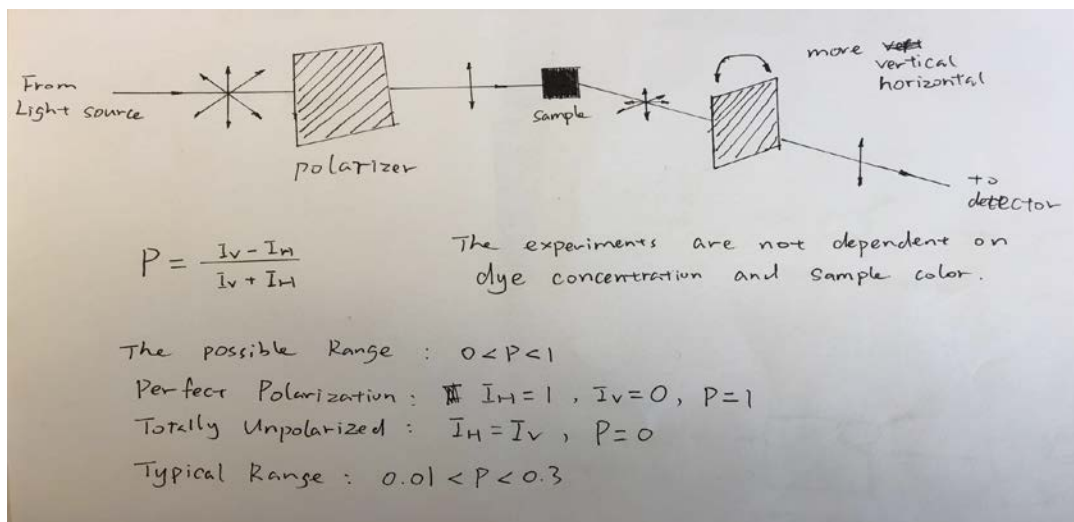 From
Light source
polarizer
sample
more vertical
horizontal
to
detector
P = (I_V - I_H) / (I_V + I_H)
The experiments are not dependent on
dye concentration and sample color.
The possible Range : 0 < P < 1
Perfect Polarization : I_H = 1 , I_V = 0 , P = 1
Totally Unpolarized : I_H = I_V , P = 0
Typical Range : 0.01 < P < 0.3